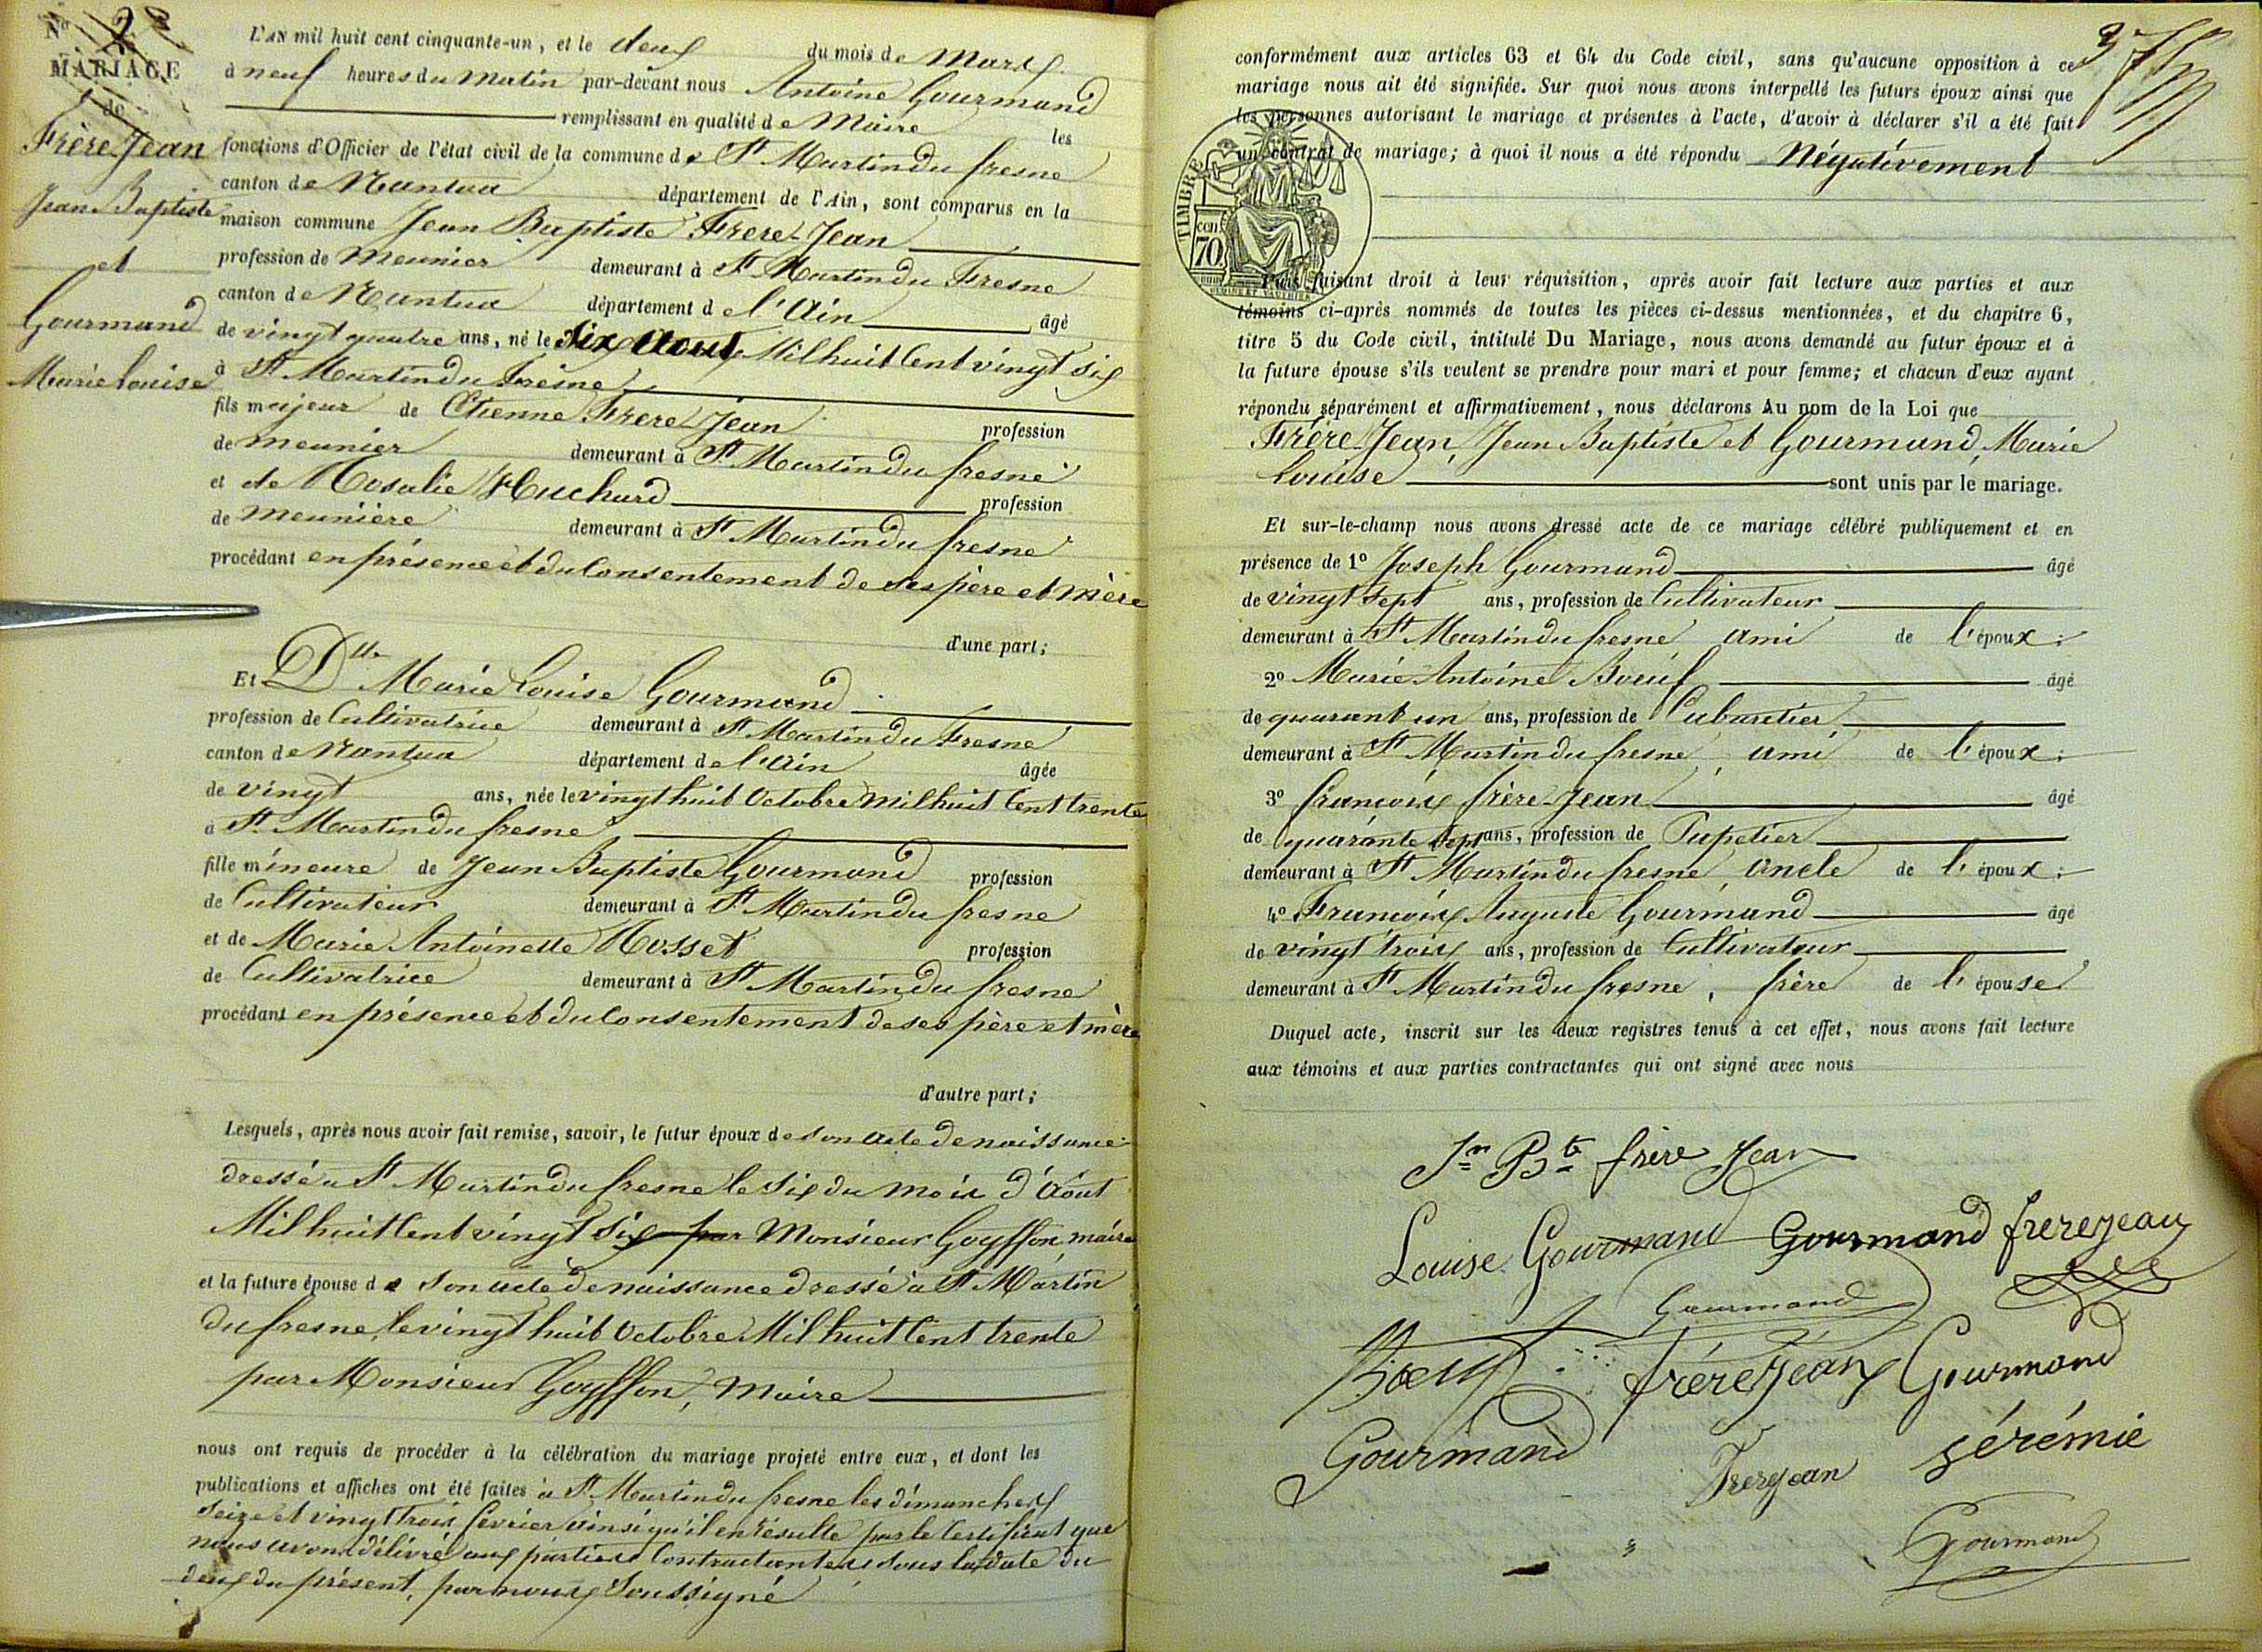 No 2
MARIAGE
de
Frère-Jean
Jean-Baptiste
et
Gourmand
Marie Louise
L'AN mil huit cent cinquante-un, et le deux du mois de Mars
à neuf heures du Matin par-devant nous Antoine Gourmand
remplissant en qualité de Maire les
fonctions d'Officier de l'état civil de la commune de St Martin du fresne
canton de Nantua département de l'Ain, sont comparus en la
maison commune Jean Baptiste Frere-Jean
profession de Meunier demeurant à St Martin du Fresne
canton de Nantua département de l'Ain âgé
de vingt quatre ans, né le Six Aout Mil huit Cent vingt six
à St Martin du Fresne
fils majeur de Etienne Frere Jean profession
de meunier demeurant à St Martin du fresne
et de Rosalie Huchard profession
de Meunière demeurant à St Martin du fresne
procédant en présence et du Consentement de ses père et mère
d'une part;
Et Dlle Marie Louise Gourmand
profession de Cultivatrice demeurant à St Martin du Fresne
canton de Nantua département de l'Ain âgée
de vingt ans, née le vingt huit Octobre Mil huit Cent trente
à St Martin du fresne
fille mineure de Jean Baptiste Gourmand profession
de Cultivateur demeurant à St Martin du fresne
et de Marie Antoinette Rosset profession
de Cultivatrice demeurant à St Martin du fresne
procédant en présence et du Consentement de ses père et mère
d'autre part;
Lesquels, après nous avoir fait remise, savoir, le futur époux de son acte de naissance
dressé à St Martin du fresne le Six du mois d'Août
Mil huit Cent vingt Six par Monsieur Goyffon, maire
et la future épouse de son acte de naissance dressé à St Martin
du fresne, le vingt huit Octobre Mil huit Cent trente
par Monsieur Goyffon, Maire
nous ont requis de procéder à la célébration du mariage projeté entre eux, et dont les
publications et affiches ont été faites à St Martin du fresne les dimanches
Seize et vingt trois fevrier ainsi qu'il en résulte par le Certificat que
nous avons délivré aux parties Contractantes sous la date du
deux du présent, par nous Soussigné
37
conformément aux articles 63 et 64 du Code civil, sans qu'aucune opposition à ce
mariage nous ait été signifiée. Sur quoi nous avons interpellé les futurs époux ainsi que
les personnes autorisant le mariage et présentes à l'acte, d'avoir à déclarer s'il a été fait
un contrat de mariage; à quoi il nous a été répondu Négativement
TIMBRE
cen.
70.
Puis faisant droit à leur réquisition, après avoir fait lecture aux parties et aux
témoins ci-après nommés de toutes les pièces ci-dessus mentionnées, et du chapitre 6,
titre 5 du Code civil, intitulé Du Mariage, nous avons demandé au futur époux et à
la future épouse s'ils veulent se prendre pour mari et pour femme; et chacun d'eux ayant
répondu séparément et affirmativement, nous déclarons Au nom de la Loi que
Frère-Jean, Jean Baptiste et Gourmand, Marie
Louise sont unis par le mariage.
Et sur-le-champ nous avons dressé acte de ce mariage célébré publiquement et en
présence de 1o Joseph Gourmand âgé
de vingt sept ans, profession de Cultivateur
demeurant à St Martin du fresne ami de l'époux;
2o Marie Antoine Boeuf âgé
de quarant un ans, profession de Cabaretier
demeurant à St Martin du fresne, ami de l'époux;
3o françois frère-Jean âgé
de quarante sept ans, profession de Papetier
demeurant à St Martin du fresne, oncle de l'époux;
4o François Auguste Gourmand âgé
de vingt trois ans, profession de Cultivateur
demeurant à St Martin du fresne, frère de l'épouse
Duquel acte, inscrit sur les deux registres tenus à cet effet, nous avons fait lecture
aux témoins et aux parties contractantes qui ont signé avec nous
Jn Bte frère Jean
Louise Gourmand Gourmand frerejean
Gourmand
Boeuf frérejean Gourmand
Gourmand Frerejean jérémie
Gourmand